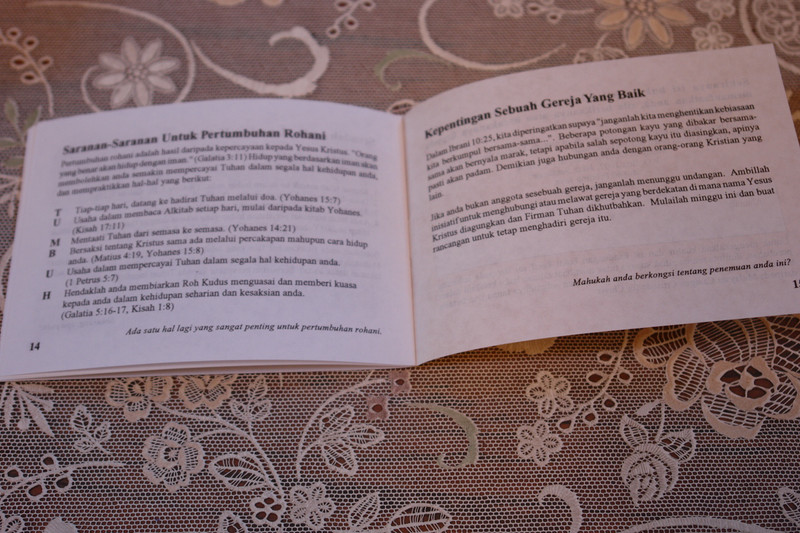 Saranan-Saranan Untuk Pertumbuhan Rohani
Pertumbuhan rohani adalah hasil daripada kepercayaan kepada Yesus Kristus. "Orang
yang benar akan hidup dengan iman." (Galatia 3:11) Hidup yang berdasarkan iman akan
membolehkan anda semakin mempercayai Tuhan dalam segala hal kehidupan anda,
dan mempraktikkan hal-hal yang berikut:
T Tiap-tiap hari, datang ke hadirat Tuhan melalui doa. (Yohanes 15:7)
U Usaha dalam membaca Alkitab setiap hari, mulai daripada kitab Yohanes.
(Kisah 17:11)
M Mentaati Tuhan dari semasa ke semasa. (Yohanes 14:21)
B Bersaksi tentang Kristus sama ada melalui percakapan mahupun cara hidup
anda. (Matius 4:19, Yohanes 15:8)
U Usaha dalam mempercayai Tuhan dalam segala hal kehidupan anda.
(1 Petrus 5:7)
H Hendaklah anda membiarkan Roh Kudus menguasai dan memberi kuasa
kepada anda dalam kehidupan seharian dan kesaksian anda.
(Galatia 5:16-17, Kisah 1:8)
Ada satu hal lagi yang sangat penting untuk pertumbuhan rohani.
14
Kepentingan Sebuah Gereja Yang Baik
Dalam Ibrani 10:25, kita diperingatkan supaya "janganlah kita menghentikan kebiasaan
kita berkumpul bersama-sama...". Beberapa potongan kayu yang dibakar bersama-
sama akan bernyala marak, tetapi apabila salah sepotong kayu itu diasingkan, apinya
pasti akan padam. Demikian juga hubungan anda dengan orang-orang Kristian yang
lain.
Jika anda bukan anggota sesebuah gereja, janganlah menunggu undangan. Ambillah
inisiatif untuk menghubungi atau melawat gereja yang berdekatan di mana nama Yesus
Kristus diagungkan dan Firman Tuhan dikhutbahkan. Mulailah minggu ini dan buat
rancangan untuk tetap menghadiri gereja itu.
Mahukah anda berkongsi tentang penemuan anda ini?